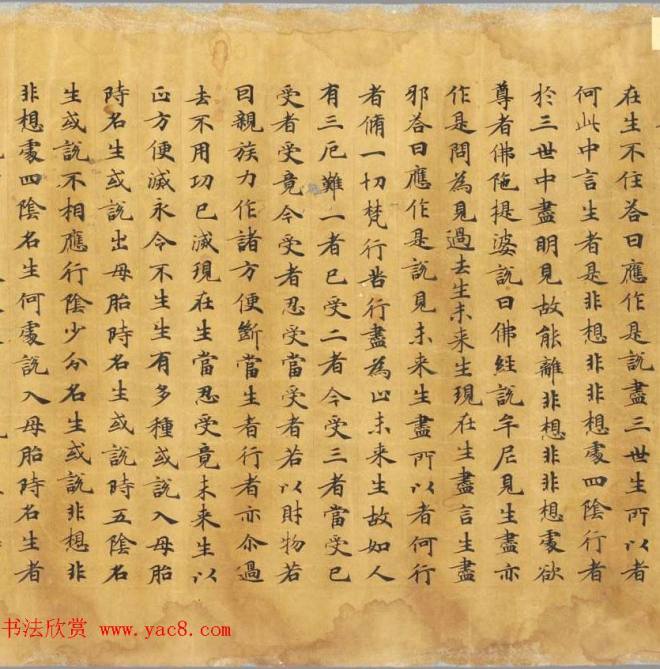 在生不住荅曰應作是說盡三世生所以者
何此中言生者是非想非非想處四陰行者
於三世中盡明見故能離非想非非想處欲
尊者佛陁提婆說曰佛經說牟尼見生盡亦
作是問為見過去生未来生現在生盡言生盡
邪荅曰應作是說見未来生盡所以者何行
者脩一切梵行苦行盡為止未来生故如人
有三厄難一者已受二者今受三者當受已
受者受竟今受者忍受當受者若以財物若
囙親族力作諸方便斷當生者行者亦尒過
去不用功已滅現在生當忍受竟未来生以
正方便滅永令不生生有多種或說入母胎
時名生或說出母胎時名生或說時五陰名
生或說不相應行陰少分名生或說非想非
非想處四陰名生何處說入母胎時名生者
书法欣赏 www.yac8.com